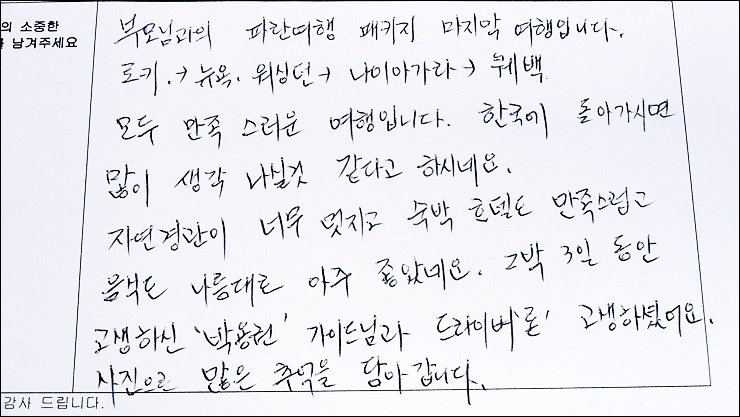 의 소중한
를 남겨주세요
부모님과의 파란여행 패키지 마지막 여행입니다.
로키.→뉴욕.워싱턴→나이아가라→퀘백
모두 만족 스러운 여행입니다. 한국에 돌아가시면
많이 생각 나실것 같다고 하시네요.
자연경관이 너무 멋지고 숙박 호텔도 만족스럽고
음식도 나름대로 아주 좋았네요. 2박 3일 동안
고생하신 '박용권' 가이드님과 드라이버'론' 고생하셨어요.
사진으로 많은 추억을 담아갑니다.
감사 드립니다.